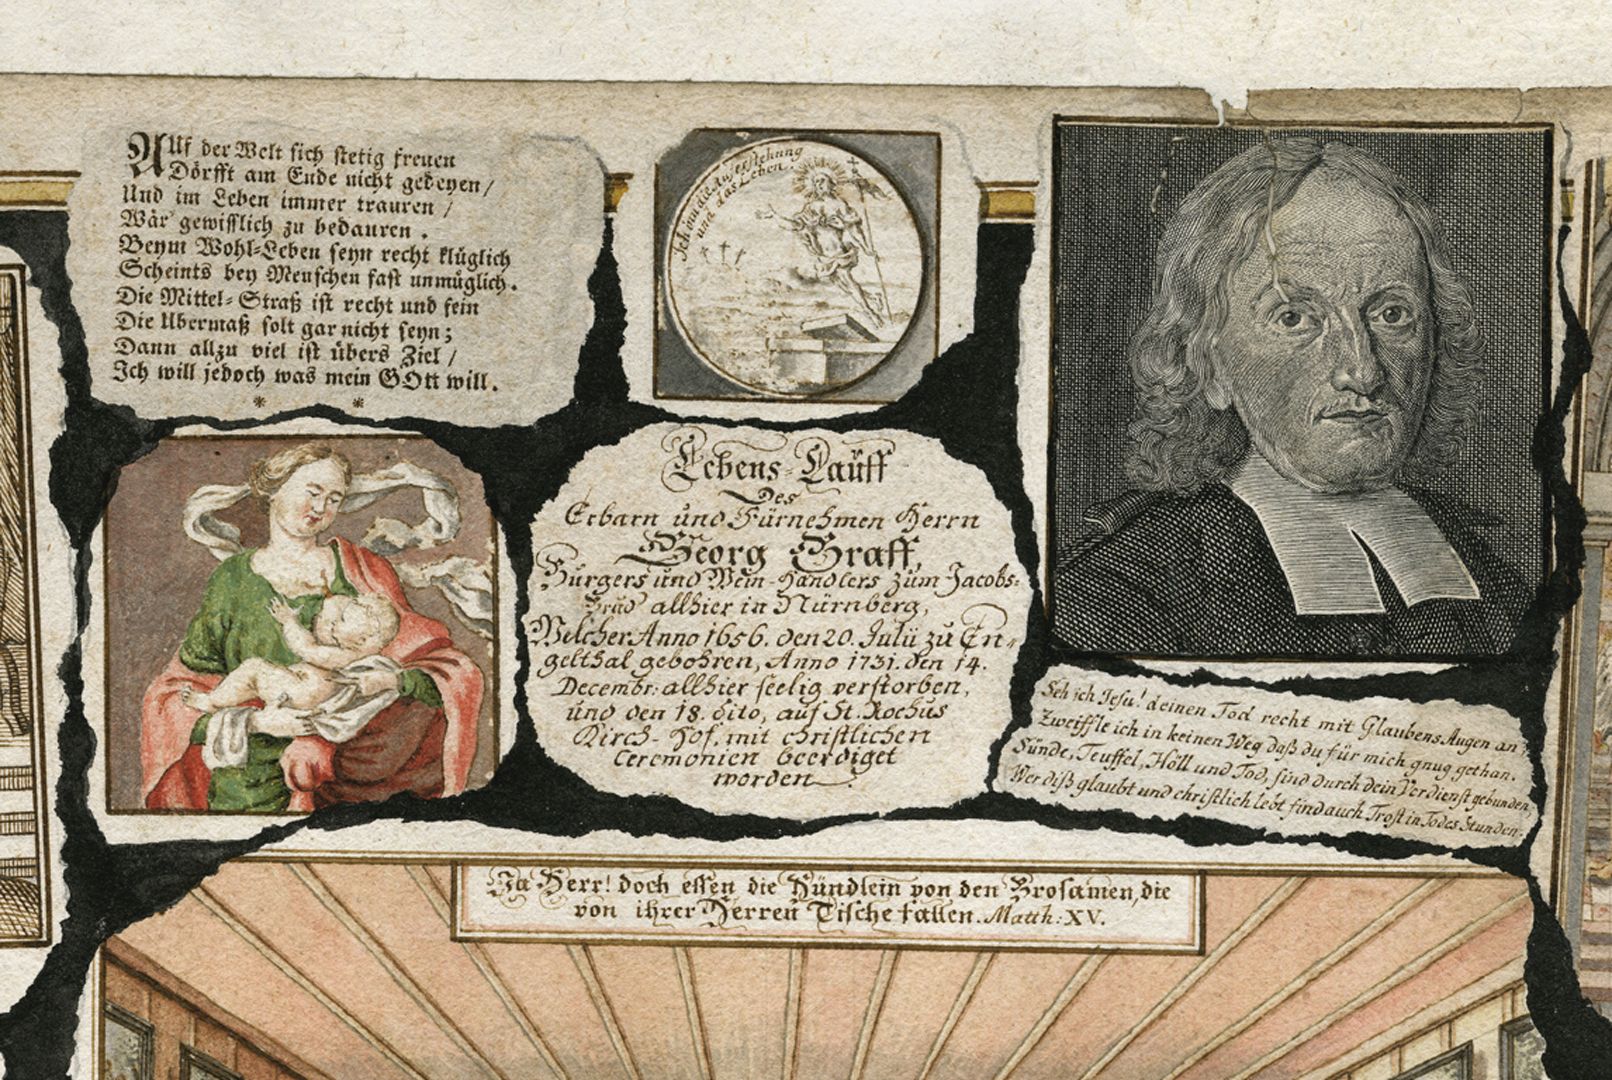 AUf der Welt sich stetig freuen
Dörfft am Ende nicht gedeyen/
Und im Leben immer trauren /
Wär gewißlich zu bedauren.
Beym Wohl-Leben seyn recht klüglich
Scheints bey Menschen fast unmüglich.
Die Mittel-Straß ist recht und fein
Die Ubermaß solt gar nicht seyn;
Dann allzu viel ist übers Ziel /
Ich will jedoch was mein GOtt will.
* *
Ich bin die Auferstehung
und das Leben.
Lebens-Lauff
Des
Erbarn und Fürnehmen Herrn
Georg Graff,
Burgers und Wein-Händlers zum Jacobs-
allhier in Nürnberg,
Welcher Anno 1656. den 20. Julii zu En-
gelthal gebohren, Anno 1731. den 14.
Decembr: allhier seelig verstorben,
und den 18. dito, auf St. Rochus
Kirch-Hof, mit christlichen
Ceremonien beerdiget
worden.
Seh ich Jesu! deinen Tod recht mit Glaubens Augen an,
Zweiffle ich in keinen Weg daß du für mich gnug gethan.
Sünde, Teuffel, Höll und Tod, sind durch dein Verdienst gebunden,
Wer diß glaubt und christlich lebt find auch Trost in Todes Stunden.
Ja Herr! doch essen die Hündlein von den Brosamen, die
von ihrer Herren Tische fallen. Matth: XV.